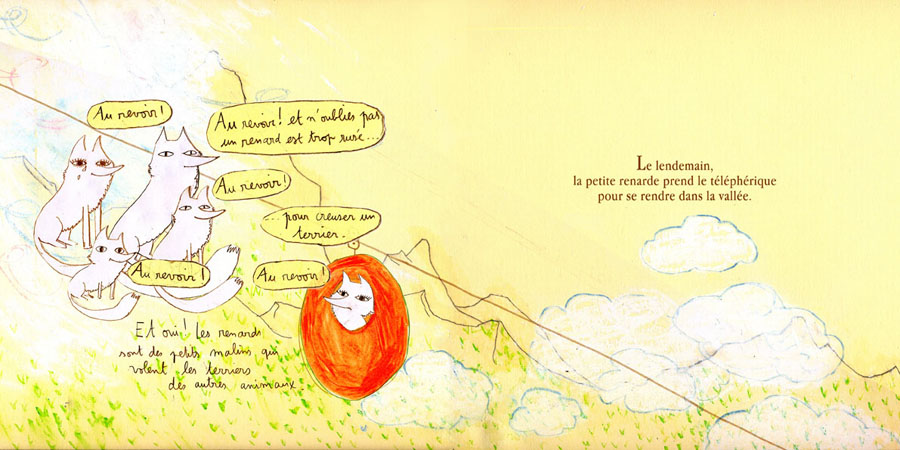 Au revoir !
Au revoir ! et n'oublies pas
un renard est trop rusé...
Au revoir !
... pour creuser un
terrier.
Au revoir !
Au revoir !
Et oui ! Les renards
sont des petits malins qui
volent les terriers
des autres animaux
Le lendemain,
la petite renarde prend le téléphérique
pour se rendre dans la vallée.